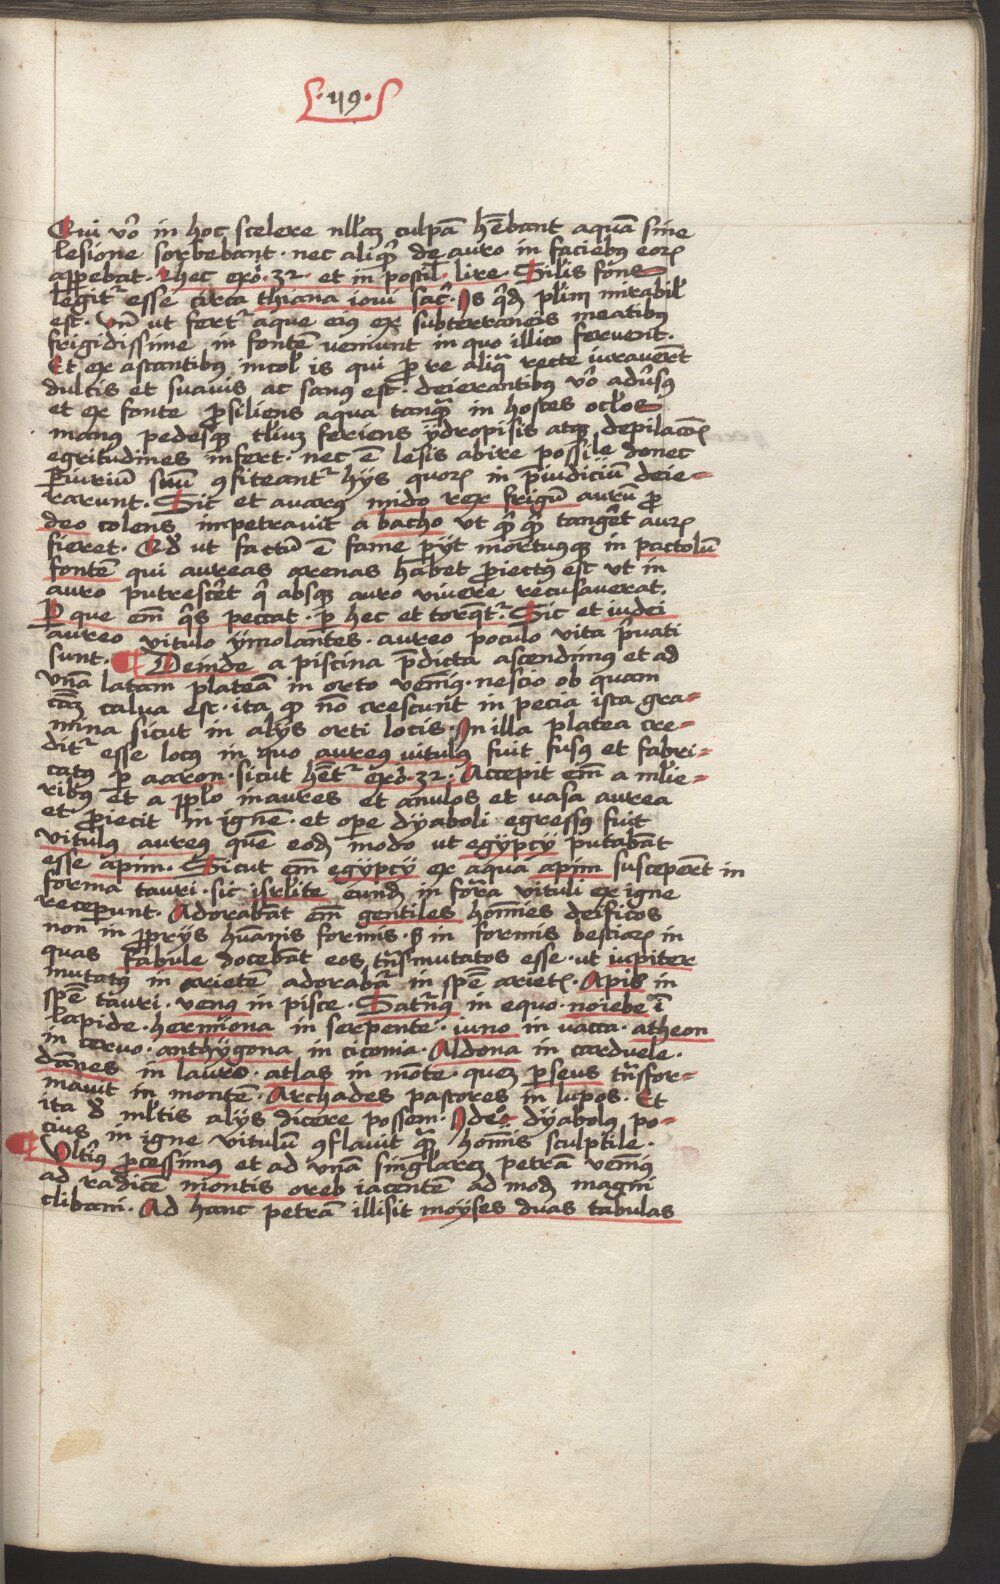 ·119·
Qui vo᷒ in hoc scelere nllaʒ culpā hēbant aquā sine
lesione sorbebant · nec aliq̄ͩ de auro in faciebꝰ eoꝝ
apꝑebat · hec exo · 32 · et in postil · lire · Silis fons
legitr esse circa thiana ioui sac̄ · Is qͥdē plim mirabil
est · Vn̄ ut fertr aque eiꝰ ex subterraneis meatibꝰ
frigidissime in fontē veniunt in quo illico fervent ·
Et ex astantibꝰ incol is qui ꝓ re aliqͣ recte iuraverūt
dulcis et suavis ac sanꝰ est · deierantibꝰ vo᷒ adūsꝰ
et ex fonte ꝓsiliens aqua tanqͣ in hostes oclos
manꝰ pedesqʒ tliuʒ feriens ydropisis atqʒ depilacōꝭ
egritudines infert · nec ē lesis abire possile donec
ꝑiuriū suū ꝯfiteantr hijs quoꝝ in p̄iudiciū deie-
rarunt · Sic et avarꝰ mido rex frigū aurū ꝓ
deo colens impetravit a bacho ut qͥ qͥ tangēt auꝝ
fieret · Qd ut factū ē fame ꝑijt mortuusqʒ in pactolū
fontē qui aureas arenas habet ꝓiectꝰ est ut in
auro putresceret qͥ absqʒ auro vivere recusaverat ·
Per que em̄ qͥs peccat · ꝑ hec et torqͣtr · Sic et iudei
aureo vitulo ymolantes · aureo poculo vita pͥvati
sunt · ¶ Deinde a piscina p̄dicta ascendimꝰ et ad
vnā latam plateā in orto venimꝰ · nescio ob quam
cāʒ calua est · ita qꝫ nō crescunt in pecia ista gra-
mina sicut in alijs orti locis · In illa platea cre-
ditr esse locꝰ in quo aureꝰ vitulꝰ fuit fusꝰ et fabri-
catꝰ ꝑ aaron · sicut hētr exo · 32 · Accepit em̄ a mlie-
ribꝰ et a pplo inaures et anulos et vasa aurea
et ꝓiecit in ignē · et ope dyaboli egressꝰ fuit
vitulꝰ aureꝰ quē eodē modo ut egypcij putabāt
esse apim · Sicut em̄ egypcij ex aqua apim susceperūt in
forma tauri · sic isrlite eundē in forͣa vituli ex igne
receperunt · Adorabāt em̄ gentiles homines deificos
non in ꝓprijs hūanis formis · sꝫ in formis bestiaꝝ in
quas fabule docebāt eos tūsmutatos esse · ut iupiter
mutatꝰ in arietē adorabar in spē arietꝭ · Apis in
spē tauri · venꝰ in pisce · Satūꝰ in equo · noiebē ī
lapide · hermiona in serpente · iuno in vacca · atheon
in cervo · anthygona in ciconia · Aldona in carduele ·
dānes in lauro · atlas in mōte · queʒ perseus tūsfor-
mauit in montē · Archades pastores in lupos · Et
ita de mltis alijs dicere possem · Ideo dyabolꝰ po-
cius in igne vitulū ꝯflavit qͣʒ homīs sculptile ·
¶ Vltiꝰ ꝓcessimꝰ et ad vnā singlareʒ petrā venimꝰ
ad radicē montis oreb iacentē ad modū magni
clibani · Ad hanc petrā illisit moyses duas tabulas